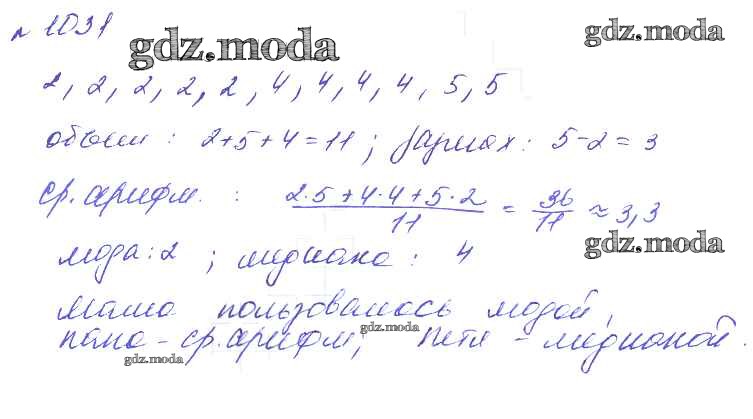 № 1031
gdz.moda
gdz.moda
2, 2, 2, 2, 2, 4, 4, 4, 4, 5, 5
объем : 2+5+4=11 ; размах : 5-2 = 3
ср. арифм. : 2·5+4·4+5·2 / 11 = 36 / 11 ≈ 3,3
gdz.moda
мода: 2 ; медиана : 4
мама пользовалась модой,
gdz.moda
папа - ср. арифм; Петя - медианой.
gdz.moda